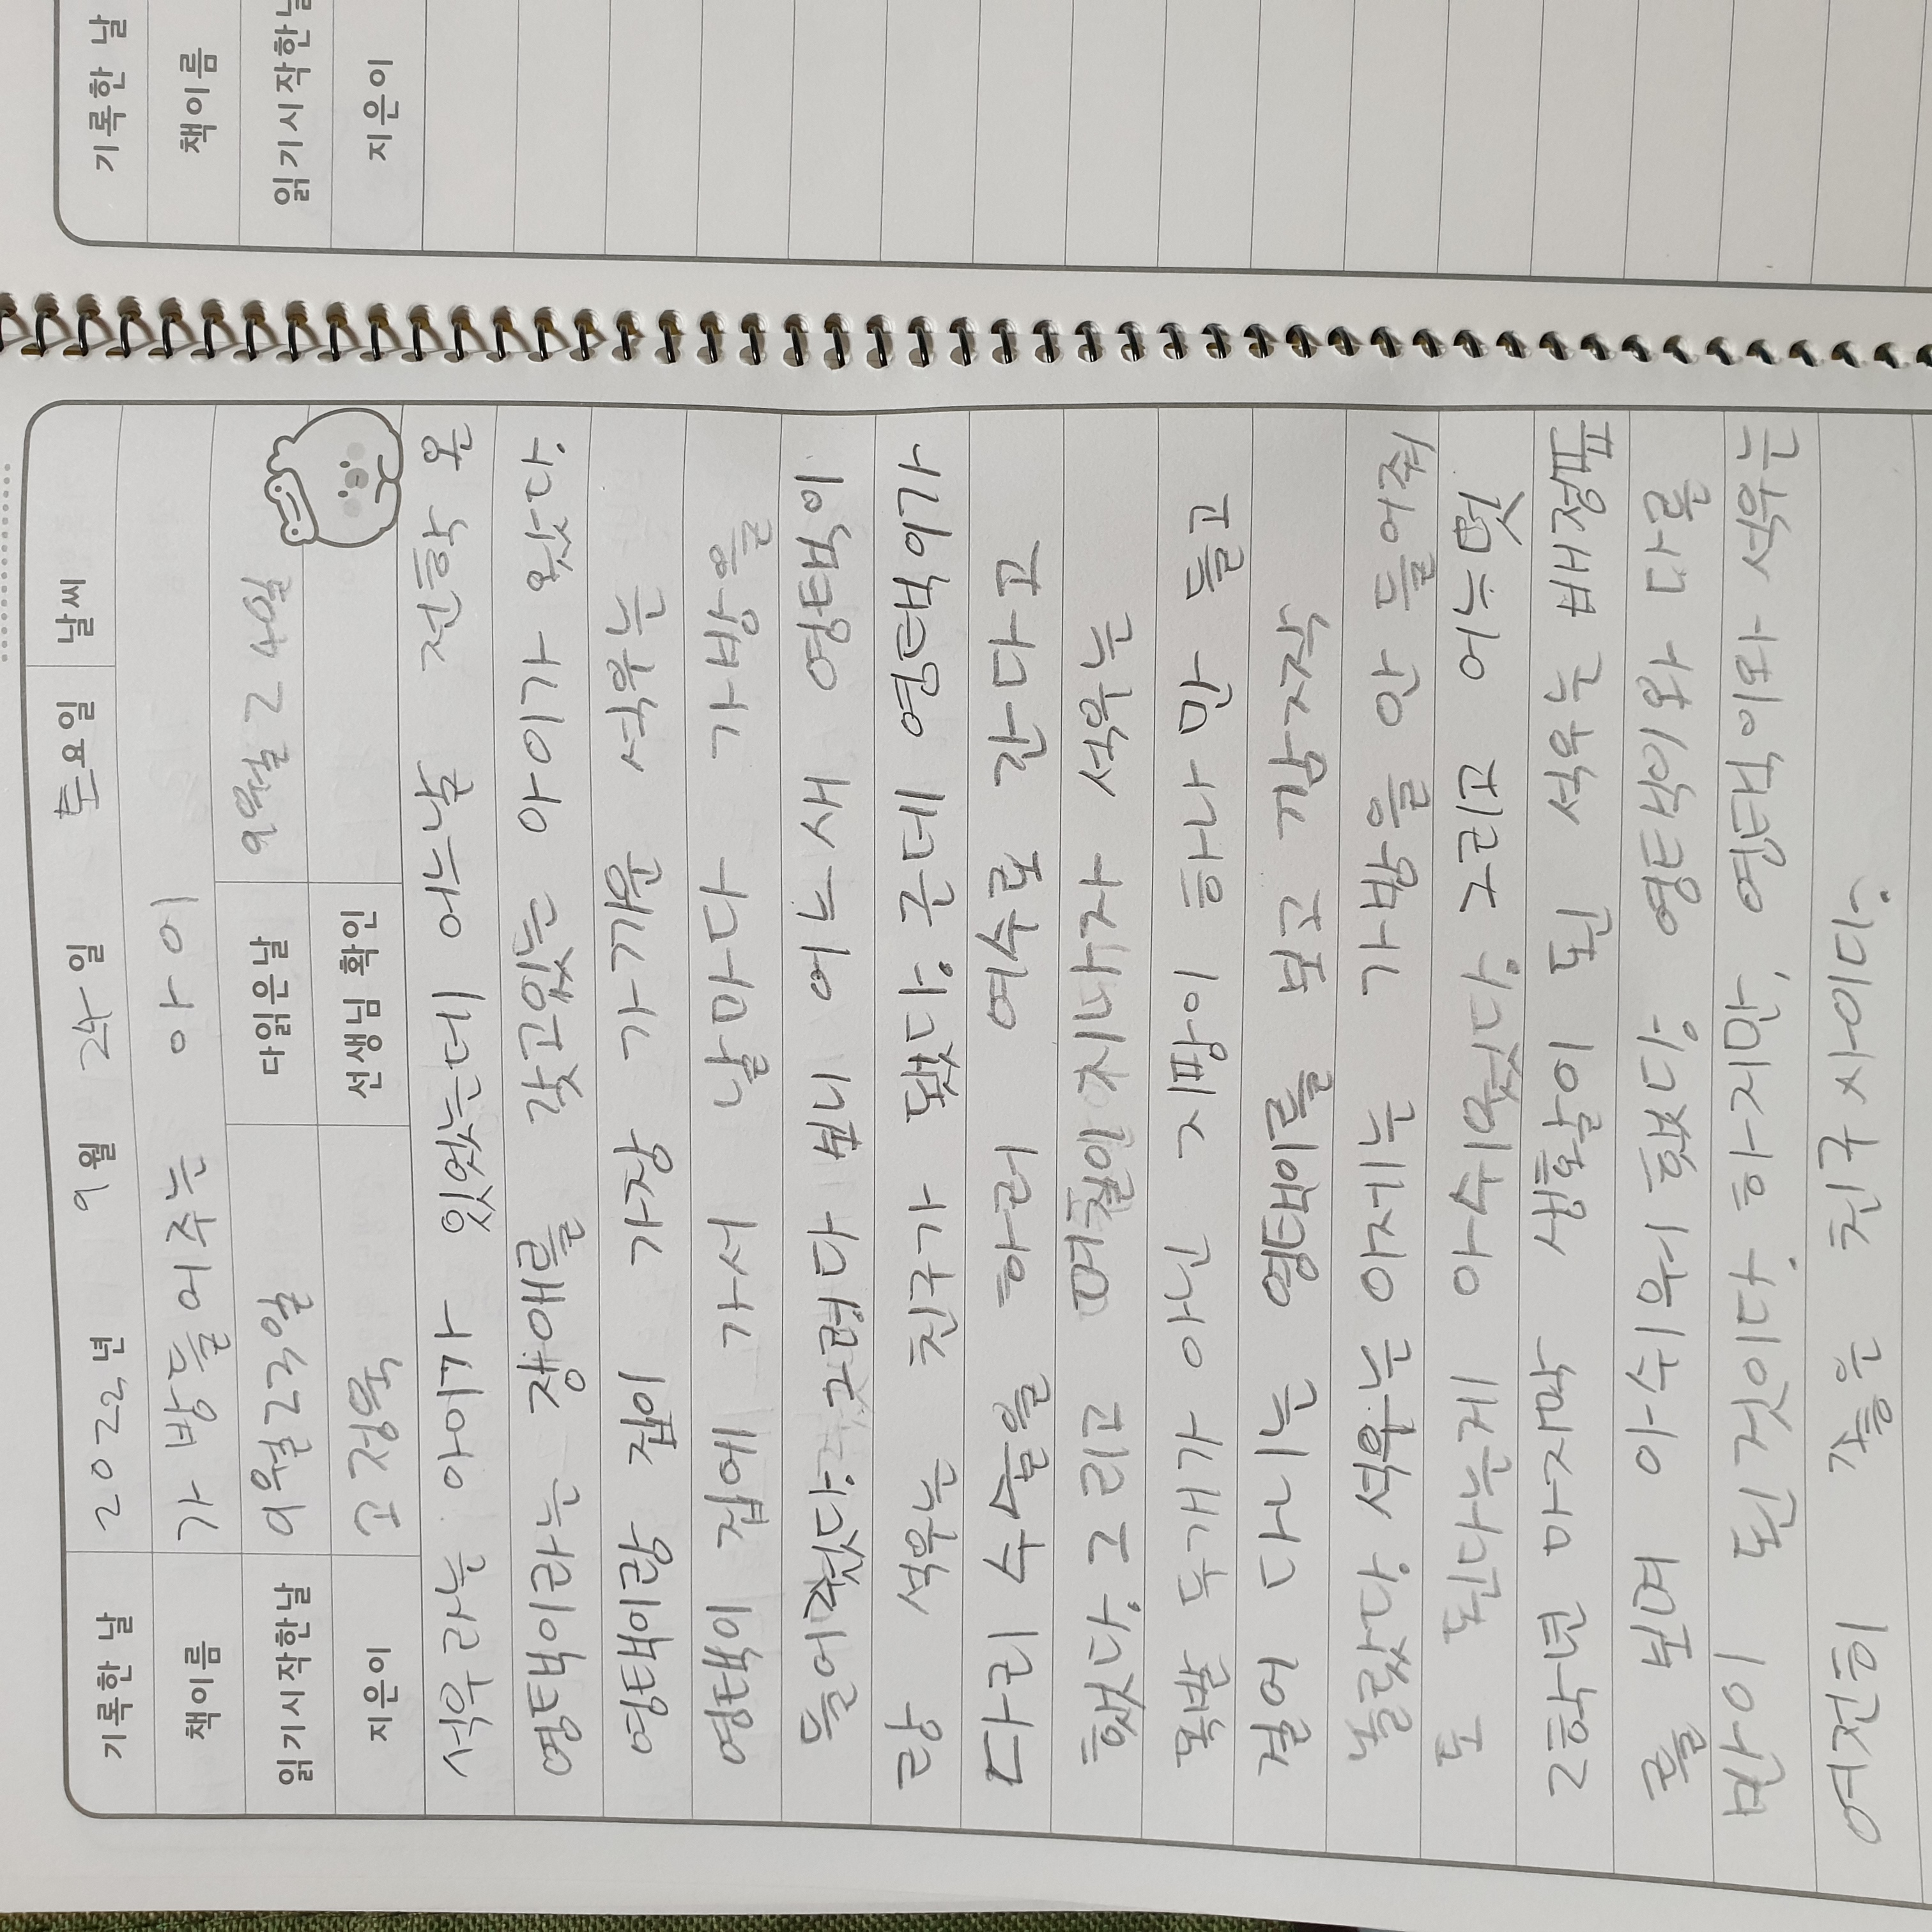 기록한 날 2022년 9월 24일 토요일 날씨
책이름 가방들어주는 아이
읽기시작한날 9월23일 다읽은날 9월24일
지은이 고정욱 선생님 확인
석우라는 아이가 있었는데 어느날 전학 온
영택이라는 장애를 갖고있는 아이가 왔다.
영택이랑 집이 가장 가까운 석우는
영택이 집에 가서 날마다 가방을
들어줬다. 그렇다 보니 어느새 영택이
랑 석우는 친구가 됐다. 근데 영택이가
다리 수술을 하러 여수로 간다고
했다. 그리고 며칠인 지나자 석우는
목발 두개가 아닌 지팡이 하나 만 들고
걸어 다니는 영택이를 보고 깜짝
놀랐다. 석우는 이제는 가방을 안 들어줘
도 된다는게 아쉬웠다. 그리고 어느덧
2학년 마지막 생활이 된 석우는 배정표
를 보며 아쉬워 했다. 영택이와 다른
반이 된 것이다. 하지만, 영택이와 석우는
여전히 좋은 친구사이다.
기록한 날
책이름
읽기시작한날
지은이